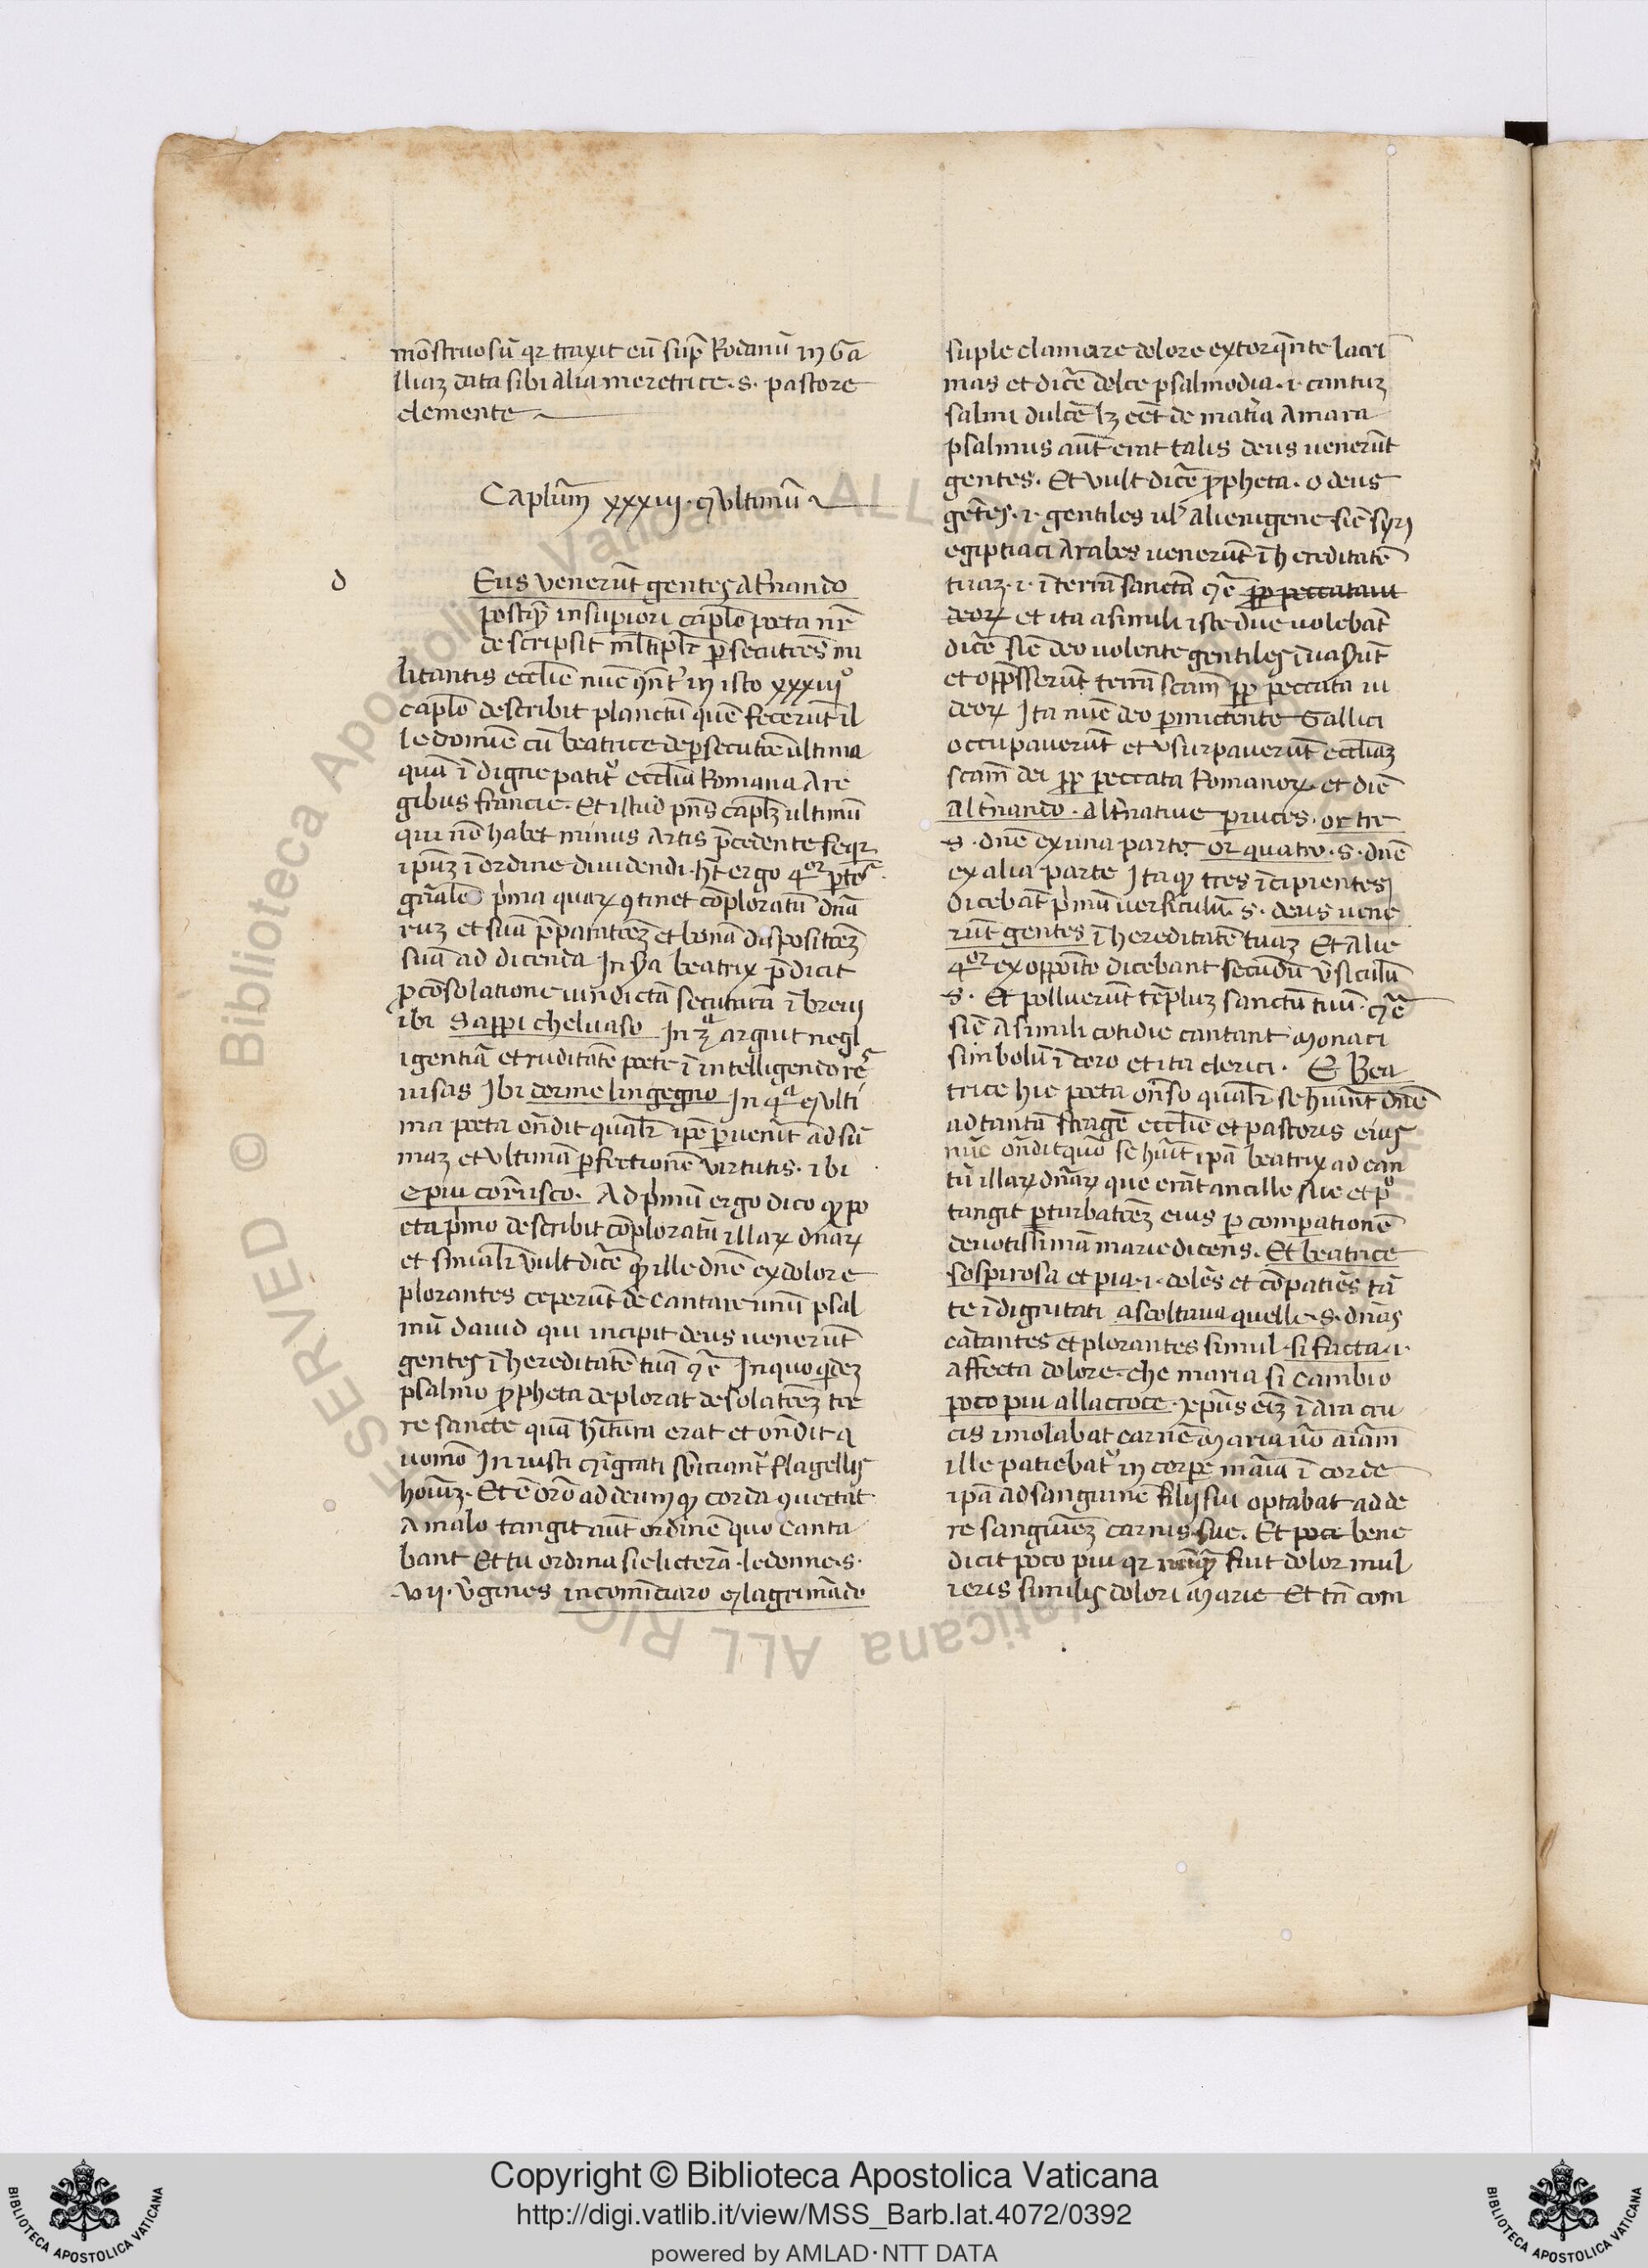 mōstruosū qr traxit eū sup̄ Rodanū in Ga
lliaz data sibi alia meretrice .s. pastore
clemente
Caplm̄ xxxiij. ꝯ ultimū
d
Eus venerūt gentes alt̄nando
postq̄ꝫ in supiori caplo poeta nr̄
descripsit ml̄tiplr̄ psecutōes mi
litantis ecclīe nūc ꝯn̄t in isto xxxiijº
caplo describit planctū quē fecerūt il
le domīe cū beatrice de psecutōe ultima
quā īdigne patit᷑ ecclīa Romana a re
gibus francie. Et istud pn̄s caplꝫ ultimū
qui nō habet minus artis p̄cedente seqr
ipūꝫ ī ordine diuidendi. hꝫ ergo 4or ptes
gn̄ales prima quaꝝ ꝯtinet cōploratū dn̄a
ruꝫ et suā p̄paratōeꝫ et bonā dispositōeꝫ
suā ad dicenda In scďa beatrix p̄dicit
ꝓ cōsolatione uindictā secuturā ī breui
ibi Sappi chel uaso In 3ª arguit negl
igentiā et ruditatē poete ī intelligendo rē
uisas Ibi dorme lingegno In 4ª ꝯ ulti
ma poeta on̄dit qualr̄ ip̄e puenit ad sū
maꝫ et ultimā pfectionē virtutis. ibi
e piu corūsco. Ad primū ergo dico ꝙ po
eta primo describit cōploratū illaꝝ dn̄aꝝ
et finialr̄ vult dicē ꝙ ille dn̄e ex dolore
plorantes ceperūt decantare unū psal
mū dauid qui incipit deus uenerūt
gentes ī hereditatē tuā ꝯē In quo qͥdeꝫ
psalmo ꝓpheta deplorat desolatōeꝫ tre
re sancte quā hītura erat et on̄dit q
uomō In iusti ꝯ īgrati sb̄iciant᷑ flagellis
hoīuꝫ. Et ē orō ad deum ꝙ corda ꝯuertāt
a malo tangit aūt ordinē quo canta
bant Et tu ordina sic licterā .le donne .s.
vij. v̄gines incomīciaro ꝯ lagrimādo
suple clamare dolore extorq̄nte lacri
mas et dicē dolce psalmodia .i. cantuꝫ
salmi dulcē lꝫ eēt de matia amara
psalmus aūt erat talis deus uenerūt
gentes. Et vult dicē ꝓpheta. o deus
gētes .i. gentiles ul̄ alienigene sic̄ syri
egiptiaci Arabes uenerūt ī hereditatē
tuaꝫ .i. ī terrā sanctā ꝯē ꝓp peccata iu
deoꝝ et ita a simili iste due uolebāt
dicē sic̄ deo uolente gentiles īuasūt
et opp̄sserūt terrā scām ꝓp peccata iu
deoꝝ Ita nūc deo pmictente Gallici
occupauerūt et vsurpauerūt eccliaꝫ
scām dei ꝓp peccata Romanoꝝ. et dic̄
alt̄nando. alt̄natiue p uices. or tre
.s. dn̄e ex una parte or quatro .s. dn̄e
ex alia parte Ita ꝙ tres īcipientes
dicebāt primū uersiculū .s. deus uene
rūt gentes ī hereditatē tuaꝫ Et alie
4or ex oppoīto dicebant secūdū v̄siculū
.s. Et polluerūt tēpluꝫ sanctū tuū. ꝯē
sic̄ a simili cotidie cantant monaci
simbolū ī coro et ita clerici. E Bea
trice hic poeta on̄so qualr̄ se huīnt dn̄e
ad tantā stragē ecclīe et pastoris eius
nūc on̄dit quō se huīt ip̄a beatrix ad can
tū illaꝝ dn̄aꝝ que erāt ancille sue et pº
tangit pturbatōeꝫ eius p compationē
deuotissimā marie dicens. Et beatrice
sospirosa et pia .i. dolēs et cōpatiēs tā
te īdignitati ascoltaua quelle .s. dn̄as
cātantes et plorantes simul. si facta .i.
affecta dolore. che maria si cambio
poco piu alla croce. xp̄us eīꝫ ī ara cru
cis imolabat carnē maria uō aīam
ille patiebat᷑ in corpe maīa ī corde
ip̄a ad sanguinē filij sui optabat adde
re sanguineꝫ carnis sue. Et poce bene
dicit poco piu qr nūq̄ꝫ fuit dolor mul
ieris similis dolori marie Et tn̄ com
Copyright © Biblioteca Apostolica Vaticana
http://digi.vatlib.it/view/MSS_Barb.lat.4072/0392
powered by AMLAD·NTT DATA
BIBLIOTECA APOSTOLICA VATICANA
BIBLIOTECA APOSTOLICA VATICANA